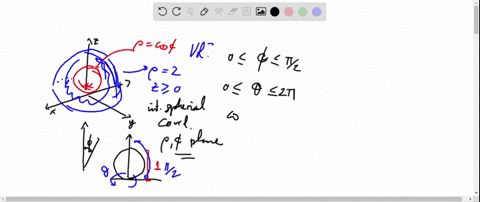 z
ρ = cos ϕ
VR?
0 ≤ ϕ ≤ π/2
ρ = 2
z ≥ 0
0 ≤ θ ≤ 2π
x
y
int. spherial
coord.
ρ, ϕ plane
ϕ
θ
1
π/2